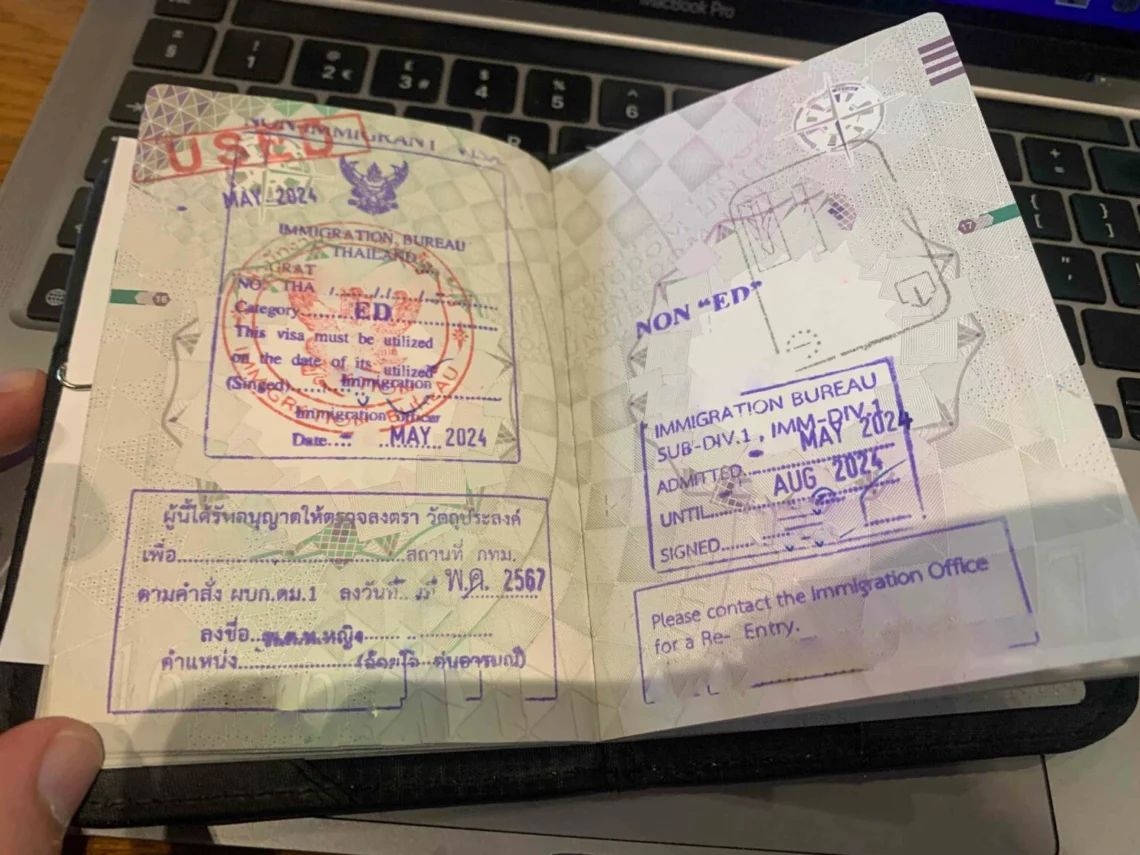 MacBook Pro
USED
NON-IMMIGRANT VISA
MAY 2024
IMMIGRATION BUREAU
THAILAND
NO. THA
Category ED
This visa must be utilized
on the date of its utilized
(Singed) Immigration
Immigration officer
Date MAY 2024
16
ผู้นี้ได้รับอนุญาตให้ตรวจลงตรา วัตถุประสงค์
เพื่อ สถานที่ กทม.
ตามคำสั่ง ผบก.ตม.1 ลงวันที่ พ.ค. 2567
ลงชื่อ พ.ต.ท.หญิง
ตำแหน่ง
17
NON "ED"
IMMIGRATION BUREAU
SUB-DIV.1 , IMM-DIV.1
ADMITTED MAY 2024
UNTIL AUG 2024
SIGNED
Please contact the Immigration Office
for a Re- Entry.